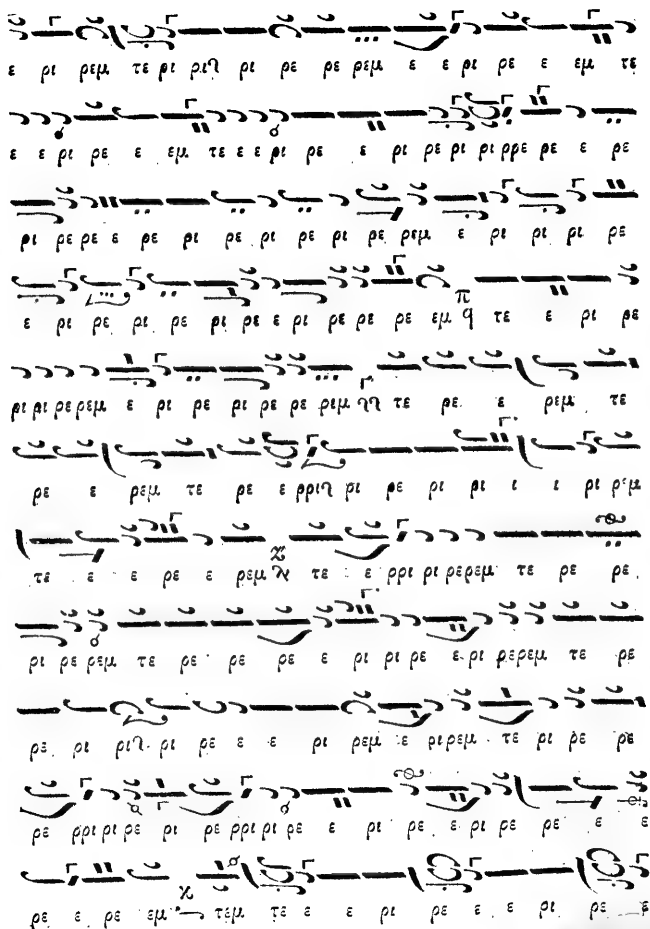 ε ρι ρεμ τε ρι ριζ ρι ρε ρε ρεμ ε ε ρι ρε ε εμ τε
ε ε ρι ρε ε εμ τε ε ε ρι ρε ε ρι ρε ρι ρι ρρε ρε ε ρε
ρι ρε ρε ε ρε ρι ρε ρι ρε ρι ρε ρεμ ε ρι ρι ρι ρε
ε ρι ρε ρι ρε ρι ρε ε ρι ρε ρε ρε εμ τε ε ρι ρε
ρι ρι ρε ρεμ ε ρι ρε ρι ρε ρε ριμ τε ρε ε ρεμ τε
ρε ε ρεμ τε ρε ε ρρι ρι ρε ρι ρι ι ι ρι ρεμ
τε ε ε ρε ε ρεμ τε ε ρρι ρι ρε ρεμ τε ρε ρε
ρι ρε ρεμ τε ρε ρε ρε ε ρι ρι ρε ε ρι ρε ρεμ τε ρε
ρε ρι ρι ρι ρε ε ε ρι ρεμ ε ρι ρεμ τε ρι ρε ρε
ρε ρρι ρι ρε ρι ρε ρρι ρι ρε ε ρι ρε ε ρι ρε ρε ε ε
ρε ε ρε εμ τεμ τε ε ε ρι ρε ε ε ρι ρε ε